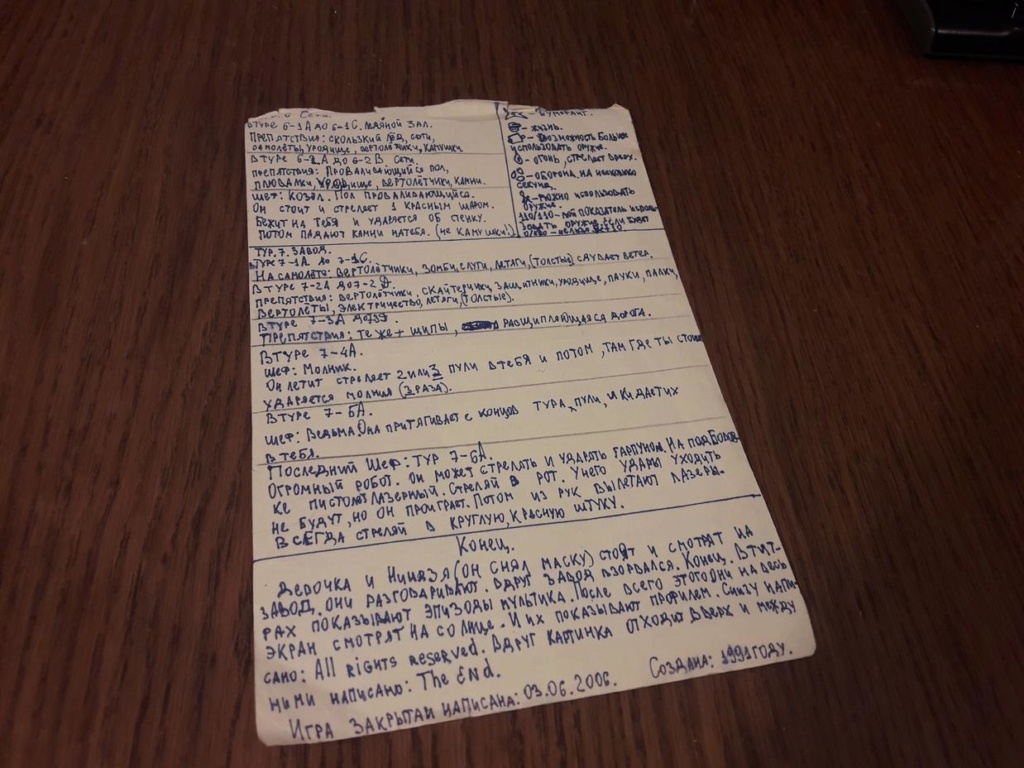 В туре 6-1А до 6-1С.
Препятствия: скользкий лёд, сети,
самолёты, уродище, вертолётчики, камушки
В туре 6-2А до 6-2В Сети.
препятствия: Проваливающийся пол,
плювалки, уродище, вертолётчики, камни.
Шеф: Козёл. Пол проваливающийся.
Он стоит и стреляет 1 красным шаром.
Бежит на тебя и ударяется об стенку.
Потом падают камни на тебя. (не камушки!)
- бумеранг.
- жизнь.
- возможность больше
использовать оружие.
- огонь, стреляет вверх.
- оборона на несколько
секунд.
- можно использовать
оружие.
110/110-
Тур. 7. Завод.
В туре 7-1А до 7-1С.
На самолёте: вертолётчики, зомби, слуги, летяги, (толстые) сдувает ветер.
В туре 7-2А до 7-2
препятствия: вертолётчики, скайтерики, защитники, уродище, пауки, палки,
вертолёты, электричество, летяги, (толстые).
В туре 7-3А до
Препятствия: те же + шипы, расщипляющаяся дорога.
В туре 7-4А.
Шеф: Молник.
Он летит стреляет 2 или 3 пули в тебя и потом, там где ты стоиш
ударяется молния (3 раза).
В туре 7-5А.
Шеф: Ведьма. Она притягивает с концов тура, пули, и кидает их
в тебя.
Последний Шеф: Тур 7-6А.
Огромный робот. Он может стрелять и ударять гарпуном. На подбород-
ке пистолет лазерный. Стреляй в рот. У него удары уходить
не будут, но он проиграет. Потом из рук вылетают лазеры.
Всегда стреляй в круглую, красную штуку.
Конец.
Девочка и Ниндзя (он снял маску) стоят и смотрят на
завод. Они разговаривают. Вдруг завод взорвался. Конец. В тит-
рах показывают эпизоды мультика. После всего этого они на весь
экран смотрят на солнце. И их показывают профилем. Снизу напи-
сано: All rights reserved. Вдруг картинка отходит вверх и между
ними написано: The End.
Игра закрытаи написана: 03.06.2006. Создана: 1991 году.